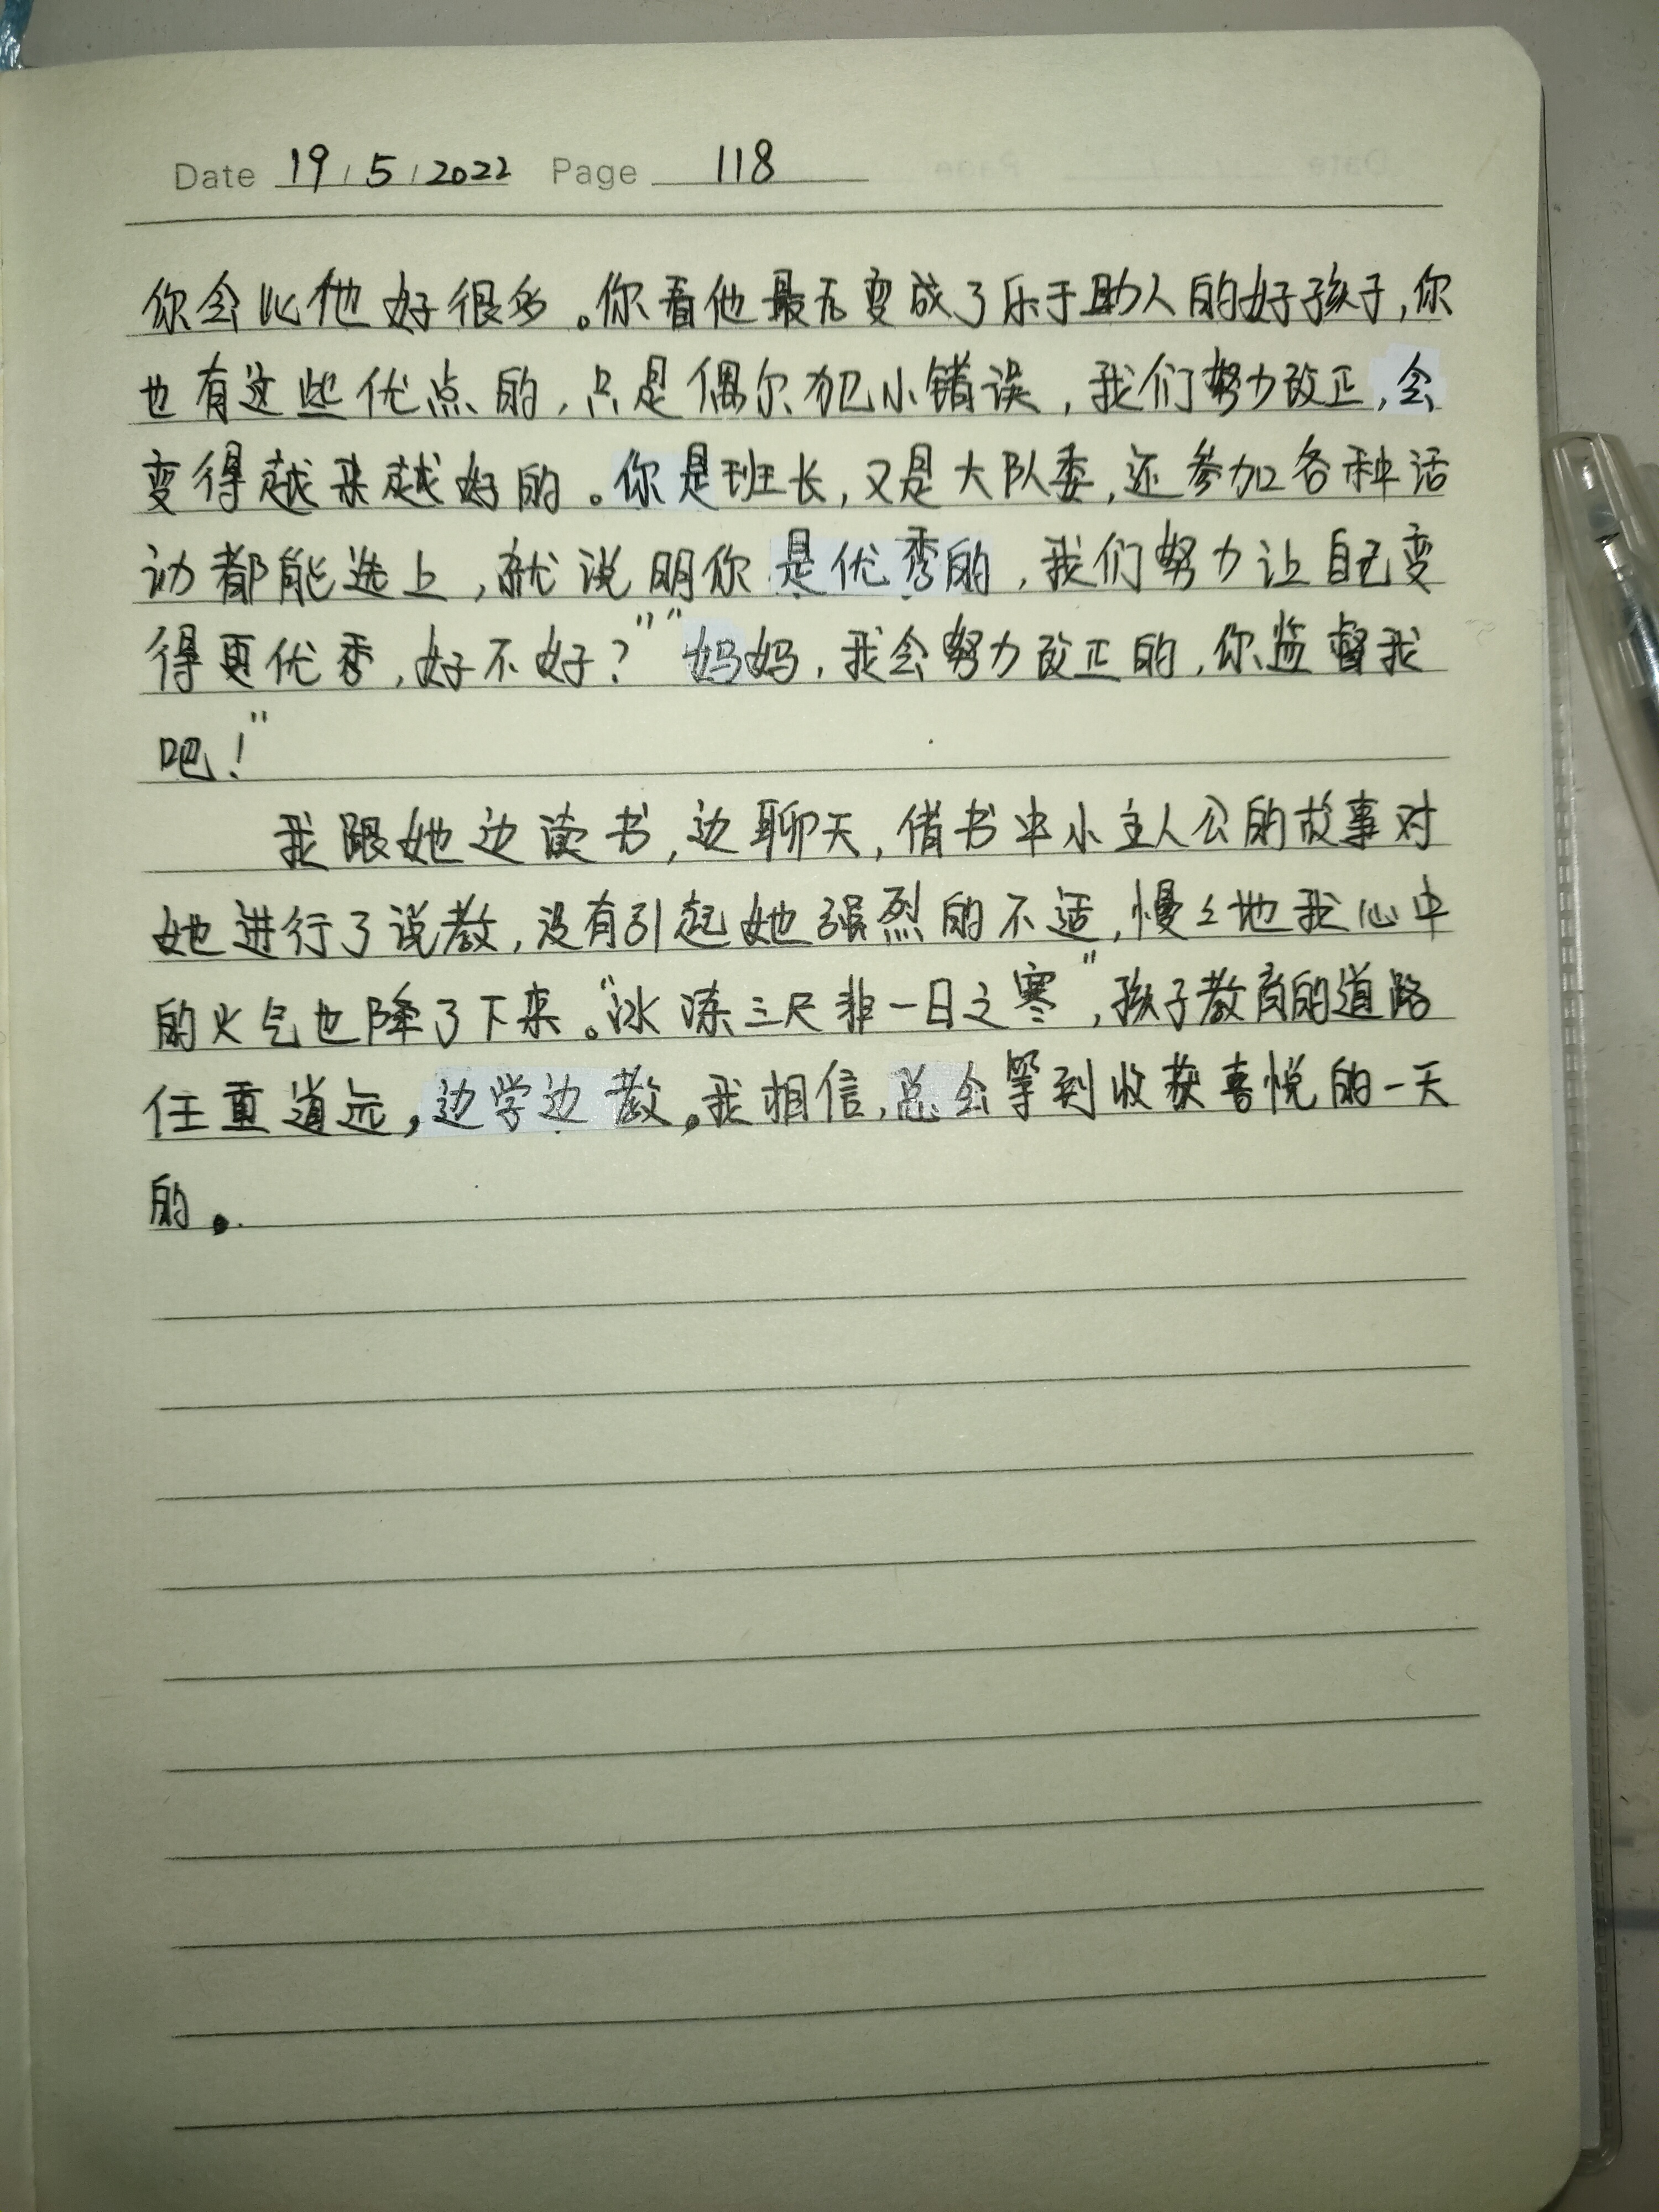 Date 19/5/2022 Page 118
你会比他好很多。你看他最后变成了乐于助人的好孩子,你
也有这些优点的,只是偶尔犯小错误,我们努力改正,会
变得越来越好的。你是班长,又是大队委,还参加各种活
动都能选上,就说明你是优秀的,我们努力让自己变
得更优秀,好不好?""妈妈,我会努力改正的,你监督我
吧!"
我跟她边读书,边聊天,借书中小主人公的故事对
她进行了说教,没有引起她强烈的不适,慢々地我心中
的火气也降了下来。"冰冻三尺非一日之寒",孩子教育的道路
任重道远,边学边教。我相信,总会等到收获喜悦的一天
的。